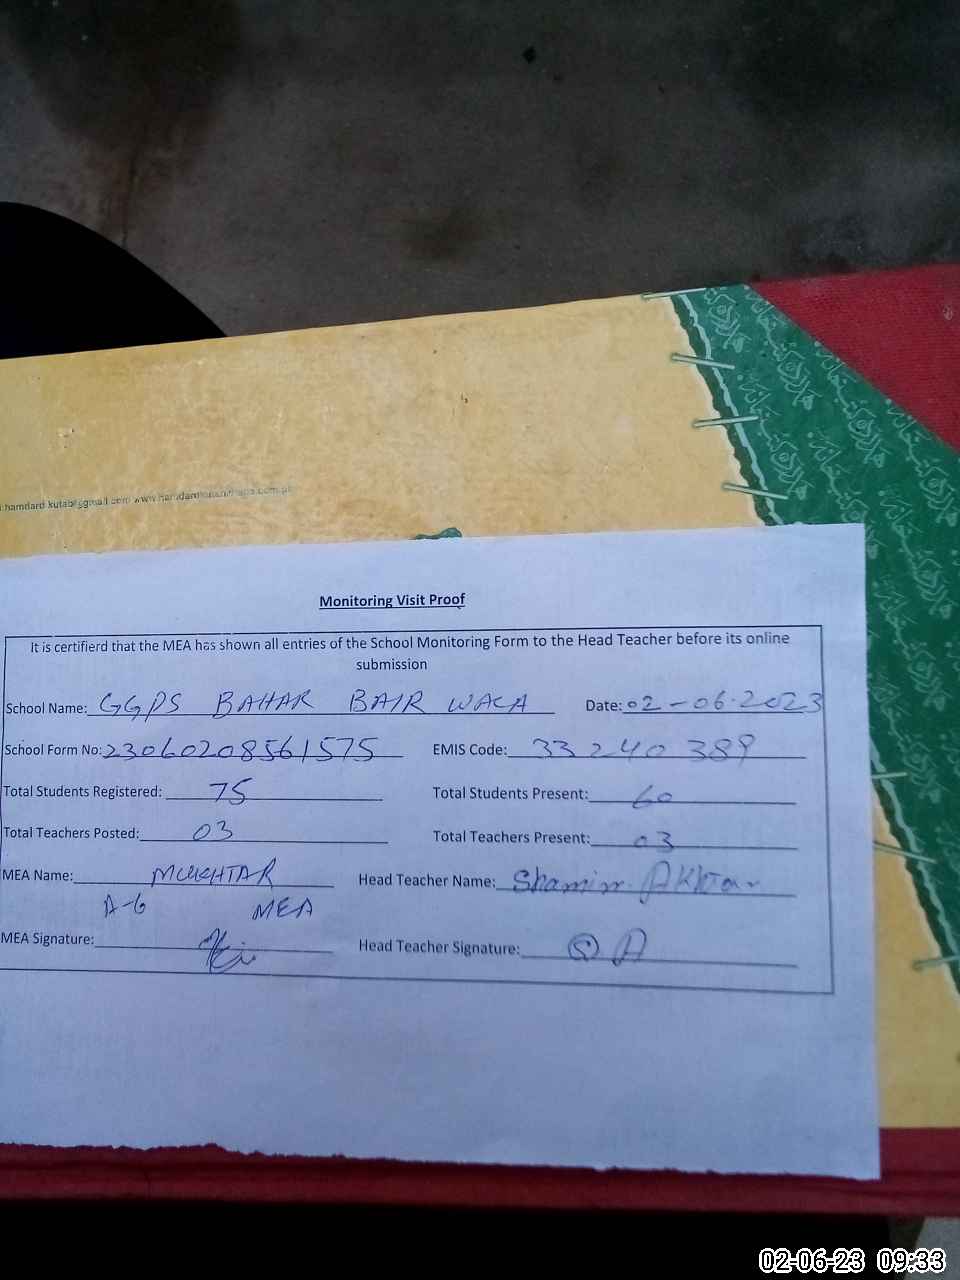 hamdard.kutab@gmail.com
Monitoring Visit Proof
It is certifierd that the MEA has shown all entries of the School Monitoring Form to the Head Teacher before its online
submission
School Name: GGPS BAHAR BAIR WALA Date: 02-06-2023
School Form No: 23060208561575 EMIS Code: 33240389
Total Students Registered: 75 Total Students Present: 60
Total Teachers Posted: 03 Total Teachers Present: 03
MEA Name: MUKHTAR Head Teacher Name: Shamim Akhtar
A-6 MEA
MEA Signature: Head Teacher Signature: S A
02-06-23 09:33